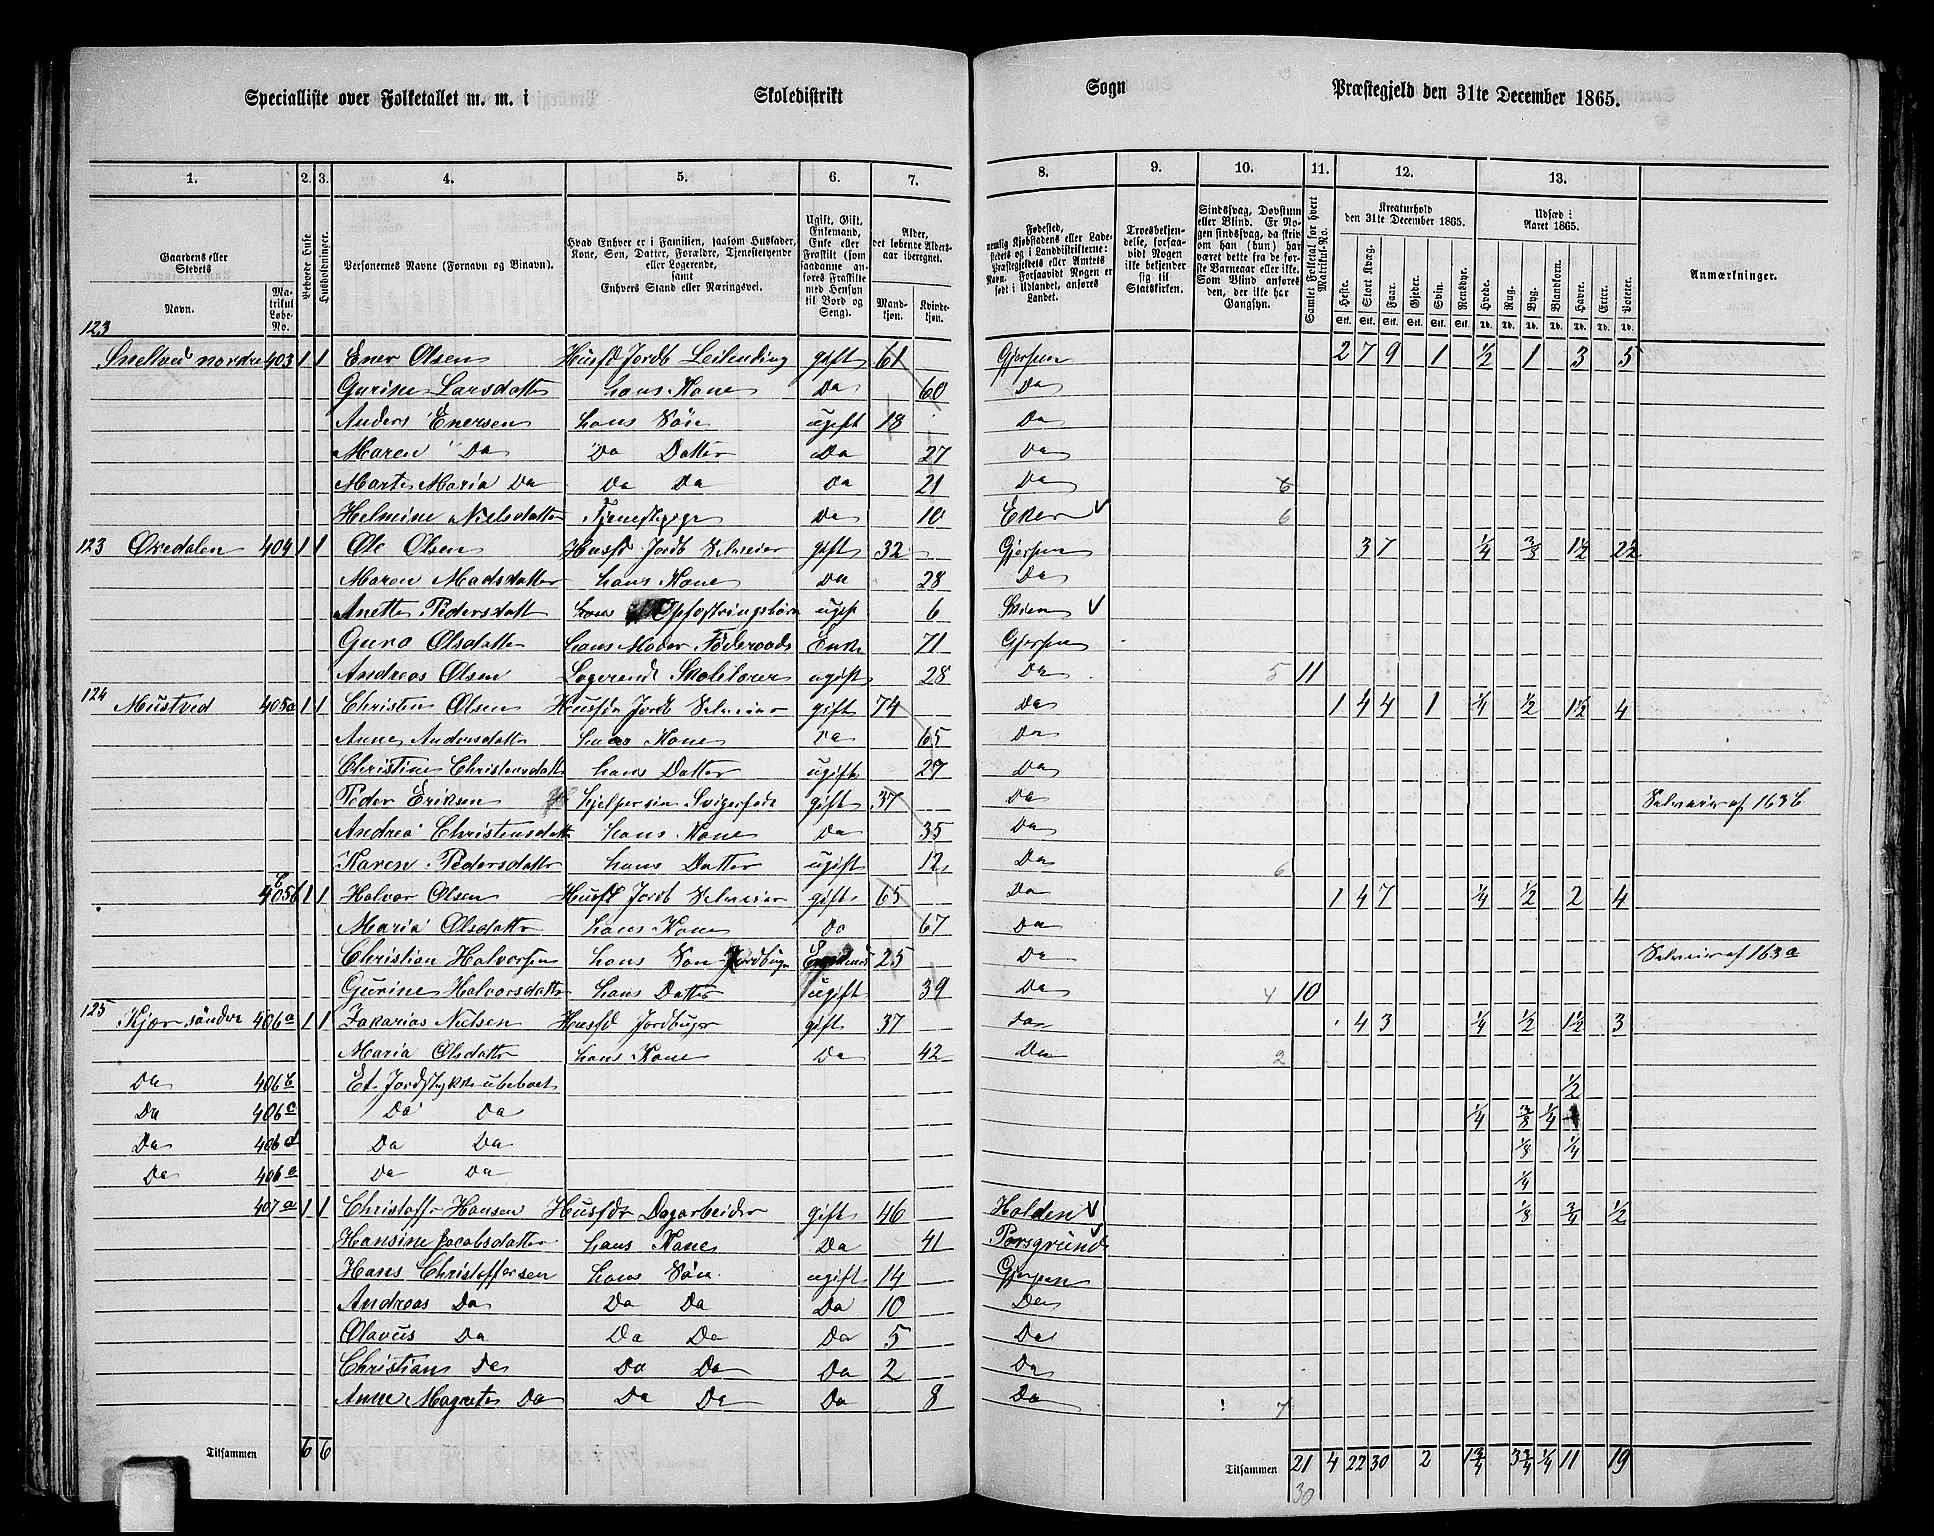 Specialliste over Folketallet m. m. i Skoledistrikt Sogn Præstegjeld den 31te December 1865.
1. 2. 3. 4. 5. 6. 7. 8. 9. 10. 11. 12. 13.
Gaardens eller Stedets Navn. Matrikul Løbe-No.
Beboede Huse
Husholdninger.
Personernes Navne (Fornavn og Binavn).
Hvad Enhver er i Familien, saasom Husfader, Kone, Søn, Datter, Forældre, Tjenestetyende eller Logerende, samt Enhvers Stand eller Næringsvei.
Ugift, Gift, Enkemand, Enke eller Fraskilt (som saadanne anføres Fraskilte med Hensyn til Bord og Seng).
Alder, det løbende Aldersaar iberegnet. Mandkjøn. Kvindekjøn.
Fødested, nemlig Kjøbstadens eller Ladestedets og i Landdistrikterne: Præstegjeldets eller Amtets Navn. Forsaavidt Nogen er født i Udlandet, anføres Landet.
Troesbekjendelse, forsaavidt Nogen ikke bekjender sig til Statskirken.
Sindssvag, Døvstum eller Blind. Er Nogen sindssvag, da skrives om han (hun) har været dette fra de første Barneaar eller ikke. Som Blind anføres den, der ikke har Gangsyn.
Samlet Folketal for hvert Matrikul-No.
Kreaturhold den 31te December 1865. Heste. Stort Kvæg. Faar. Gjeder. Svin. Rensdyr.
Udsæd i Aaret 1865. Hvede. Rug. Byg. Blandkorn. Havre. Erter. Poteter.
Anmærkninger.
Stk. Stk. Stk. Stk. Stk. Stk. Td. Td. Td. Td. Td. Td. Td.
123
Snelved nordre 403 1 1 Ener Olsen Husfd Jordb Leilending gift 61 Gjerpen 2 7 9 1 1/2 1 3 5
Gurine Larsdatter hans Kone Da 60 Da
Anders Enersen hans Søn ugift 18 Da
Maren Da Da Datter Da 27 Da
Marte Maria Da Da Da Da 21 Da 6
Helmine Nielsdatter Tjenestepige Da 10 Eker 6
123 Øredalen 404 1 1 Ole Olsen Husfd Jordb Selveier gift 32 Gjerpen 3 7 1/4 2/3 1 1/2 2 1/2
Maren Madsdatter hans Kone Da 28 Da
Anette Pedersdatt hans Opfostringsbarn ugift 6 Skien
Guro Olsdatter hans Moder Føderaads Enke 71 Gjerpen
Andreas Olsen Logerende Skolelærer ugift 28 Da 5 11
124 Mustved 405a 1 1 Christen Olsen Husfdr Jordb Selveier gift 74 Da 1 4 4 1 1/4 1/2 1 1/2 4
Anne Andersdatter hans Kone Da 65 Da
Christine Christensdatt hans Datter ugift 27 Da
Peder Eriksen hjelper sin Svigerfader gift 37 Da Selveier af 163 b
Andrea Christensdatt hans Kone Da 35 Da
Karen Pedersdatter hans Datter ugift 12 Da 6
405b 1 1 Halvor Olsen Husfd Jordb Selveier gift 65 Da 1 4 7 1/4 1/2 2 4
Maria Olsdatter hans Kone Da 67 Da
Christian Halvorsen hans Søn Jordbrug 25 Da Selveier af 163 a
Gurine Halvorsdatter hans Datter ugift 39 Da 4 10
125 Kjær søndre 406a 1 1 Zakarias Nielsen Husfd Jordbrugr gift 37 Da 4 3 1/4 1/2 1 1/2 3
Maria Olsdatter hans Kone Da 42 Da 2
Da 406b Et Jordstykke ubeboet 1/2
Da 406c Da Da 1/4 1/4
Da 406d Da Da 1/8 1/4
Da 406e Da Da 1/4
407a 1 1 Christoffer Hansen Husfdr Dagarbeider gift 46 Holden 1/8 3/4 1/2
Hansine Jacobsdatter hans Kone Da 41 Porsgrund
Hans Christoffersen hans Søn ugift 14 Gjerpen
Andreas Da Da Da Da 10 Da
Olavus Da Da Da Da 5 Da
Christian Da Da Da Da 2 Da
Anne Magrete Da Da Da Da 8 Da 7
Tilsammen 6 6 Tilsammen 21 4 22 30 2 1 3/4 3 3/4 1/4 11 19
30